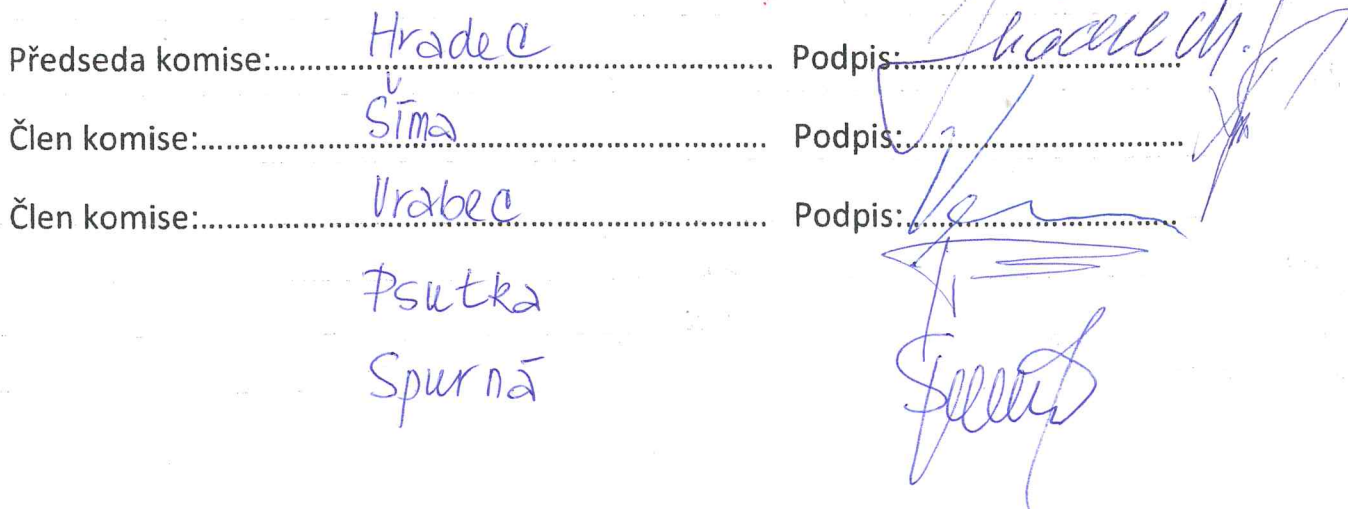 Předseda komise:............Hradec............ Podpis:............
Člen komise:............Šíma............ Podpis:............
Člen komise:............Vrabec............ Podpis:............
Psutka
Spurná